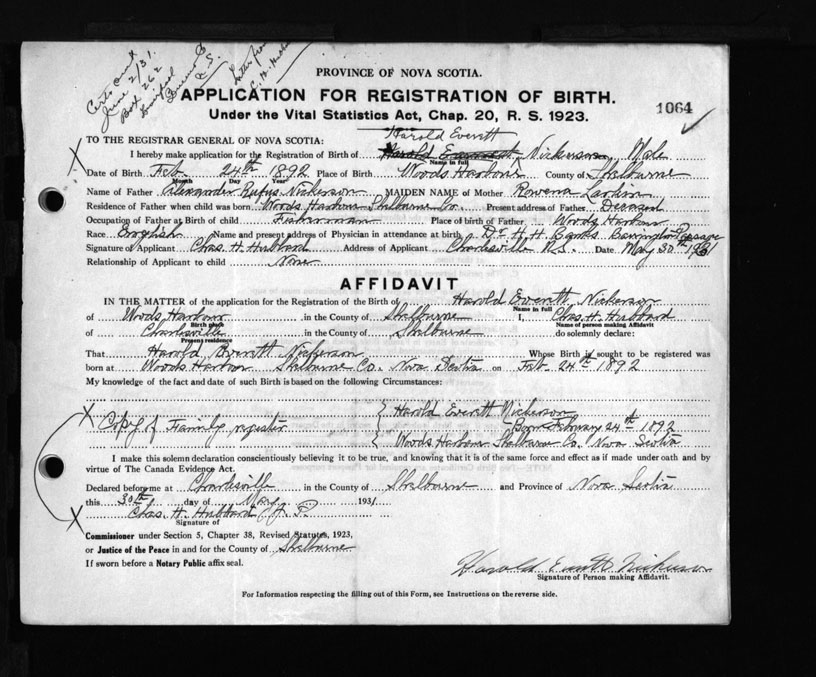 Certs sent
June 2/31.
Box 262
Liverpool
N.S.
letter from
C. H. Hubbard
PROVINCE OF NOVA SCOTIA.
APPLICATION FOR REGISTRATION OF BIRTH.
1064
Under the Vital Statistics Act, Chap. 20, R. S. 1923.
TO THE REGISTRAR GENERAL OF NOVA SCOTIA:
Harold Everett
I hereby make application for the Registration of Birth of Harold Nickerson, Male
Name in full
Date of Birth Feb. 24th 1892 Place of Birth Woods Harbour County of Shelburne
Month Day Year
Name of Father Alexander Rufus Nickerson MAIDEN NAME of Mother Rowena Larkin
Residence of Father when child was born Woods Harbour Shelburne Co. Present address of Father Deceased
Occupation of Father at Birth of child Fisherman Place of birth of Father Woods Harbour
Race English Name and present address of Physician in attendance at birth Dr. H. H. Banks, Barrington Passage
Signature of Applicant Chas. H. Hubbard Address of Applicant Charlesville N.S. Date May 30th 1931
Relationship of Applicant to child None
AFFIDAVIT
IN THE MATTER of the application for the Registration of the Birth of Harold Everett Nickerson
Name in full
of Woods Harbour in the County of Shelburne I, Chas. H. Hubbard
Birth place Name of person making Affidavit
of Charlesville in the County of Shelburne do solemnly declare:
Present residence
That Harold Everett Nickerson Whose Birth is sought to be registered was
born at Woods Harbour Shelburne Co., Nova Scotia on Feb. 24th 1892
My knowledge of the fact and date of such Birth is based on the following Circumstances:
Harold Everett Nickerson
Copy of Family register Born February 24th 1892
Woods Harbour Shelburne Co. Nova Scotia
I make this solemn declaration conscientiously believing it to be true, and knowing that it is of the same force and effect as if made under oath and by
virtue of The Canada Evidence Act.
Declared before me at Charlesville in the County of Shelburne and Province of Nova Scotia
this 30th day of May 1931
Chas. H. Hubbard J. P.
Signature of
Commissioner under Section 5, Chapter 38, Revised Statutes, 1923,
or Justice of the Peace in and for the County of Shelburne
If sworn before a Notary Public affix seal.
Harold Everett Nickerson
Signature of Person making Affidavit.
For Information respecting the filling out of this Form, see Instructions on the reverse side.